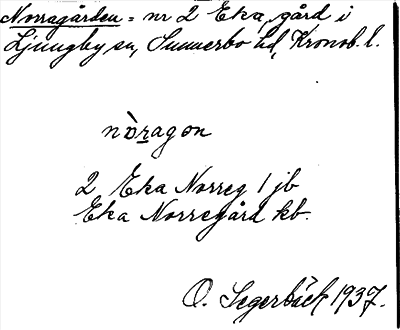 Norragården = nr 2 Eka, gård i
Ljungby sn, Sunnerbo hd, Kronob. l.
nòragon
2 Eka Norreg 1 jb
Eka Norregård kb.
O. Segerbäck 1937.